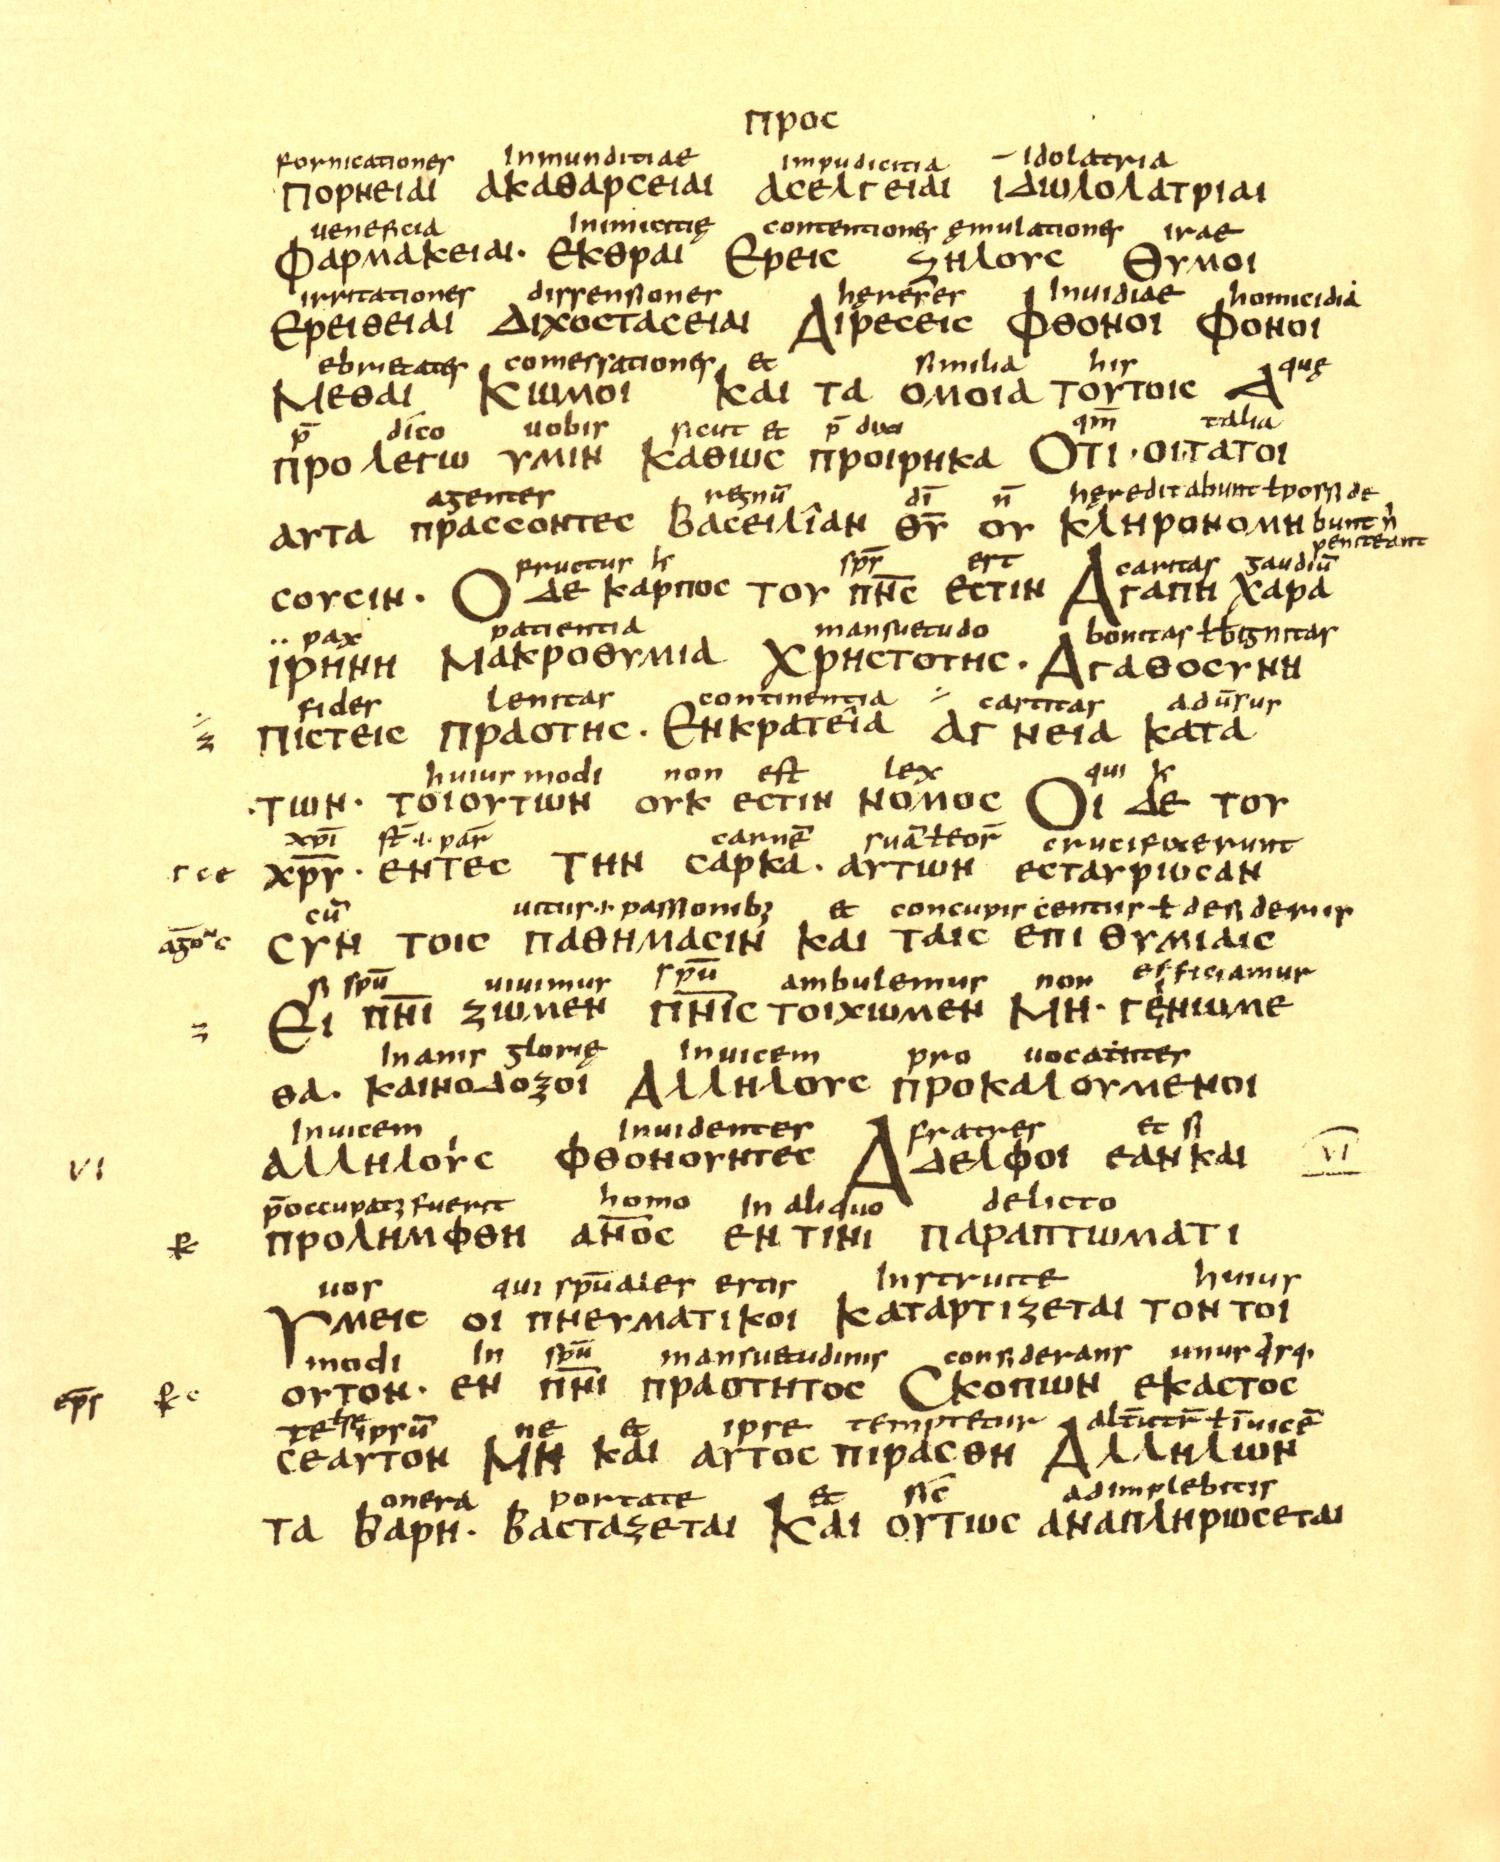 προς
fornicationes Inmunditiae impudicitia idolatria
πορνειαι ακαθαρσειαι ασελγειαι ιδωλολατριαι
ueneficia Inimicitię contentiones ęmulationes irae
Φαρμακειαι· εκθραι Ερεις ζηλους Θυμοι
irritationes dissensiones hereses Inuidiae homicidia
Ερειθειαι Διχοστασειαι Αιρεσεις Φθονοι Φονοι
ebrietates comessationes et similia his quę
Μεθαι Κωμοι Και τα ομοια τουτοις Α
p̄ dico uobis sicut et p̄ dixi qm̄ talia
προ λεγω υμιν καθως προιρηκα Οτι·οι·τατοι
agentes regnū dī n̄ hęreditabunt ł possi de
αυτα πρασσοντες βασειλιαν θ̅υ̅ ου κληρονομη bunt
peniteant
fructus sp̄s est caritas gaudiū
σουσιν· Ο δε καρπος του π̅ν̅ς̅ εστιν Αγαπη χαρα
pax patientia mansuetudo bonitas ł bignitas
ιρηνη Μακροθυμια Χρηστοτης· Αγαθοσυνη
fides lenitas continentia castitas adūsus
πιστεις πραοτης· Ενκρατεια αγ νεια κατα
huius modi non est lex qui
·των· τοιουτων ουκ εστιν νομος Οι δε του
xp̄i carnē suā ł eor̄ crucifixerunt
χ̅ρ̅υ̅· εντες την σαρκα· αυτων εσταυρωσαν
cū uitiis ·ł· passionibꝫ et concupis centiis ł desideriis
συν τοις παθημασιν και ταις επι θυμιαις
si spū uiuimus spū ambulemus non efficiamur
Ει π̅ν̅ι̅ ζωμεν π̅ν̅ι̅ς τοιχωμεν Μη· γενωμε
Inanis glorię Inuicem pro uocantes
θα· καινοδοξοι Αλληλους προκαλουμενοι
Inuicem Inuidentes fratres et si
VI αλληλοις φθονουντες Αδελφοι εαν και VI
p̄occupatꝫ fuerit homo In aliquo delicto
προλημφθη α̅ν̅ο̅ς̅ εν τινι παραπτωματι
uos qui spūales estis Instruite huius
Υμεις οι πνευματικοι καταρτιζεται τον τοι
modi In spū mansuetudinis considerans unus
ουτον· εν π̅ν̅ι̅ πραοτητος Σκοπων εκαστος
ne et ipse temptetur ł Inuicē
σεαυτον Μη και αυτος πιρασθη Αλληλων
onera portate et sic adimplebitis
τα βαρη· βασταζεται Και ουτως αναπληρωσεται